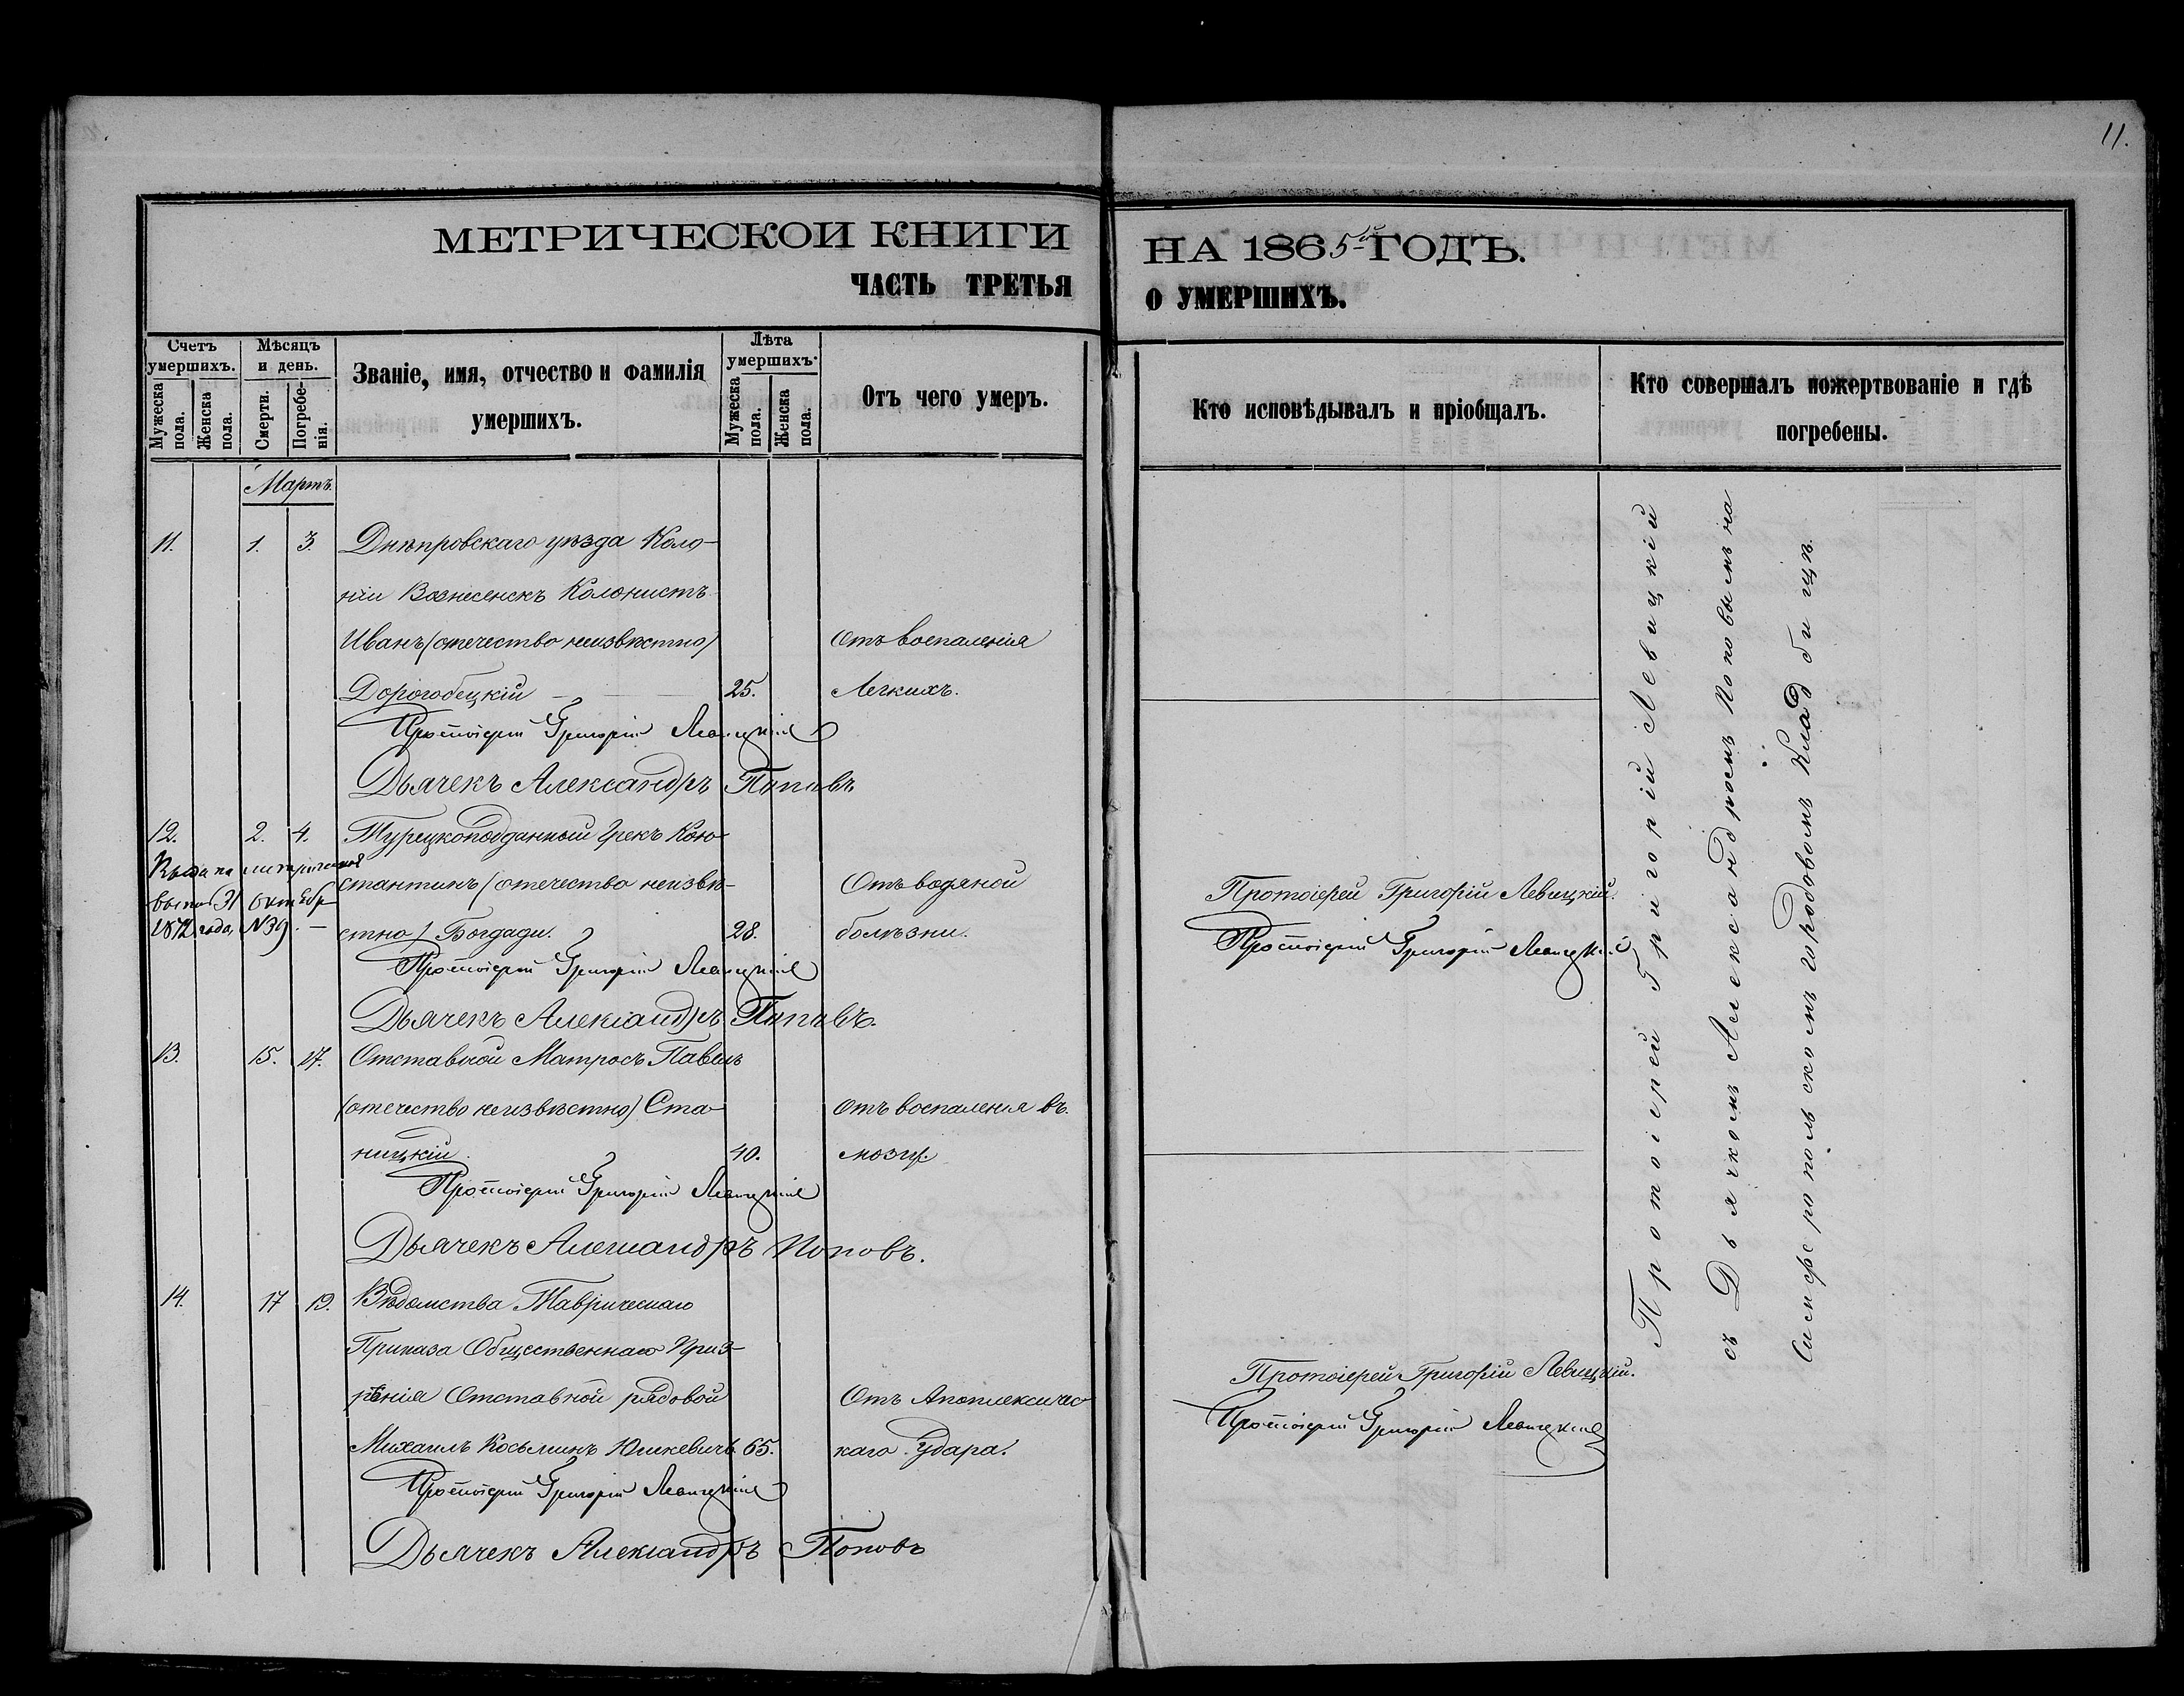 11.
МЕТРИЧЕСКОЙ КНИГИ
ЧАСТЬ ТРЕТЬЯ
НА 1865й ГОДЪ.
О УМЕРШИХЪ.
Счетъ умершихъ.
Мужеска пола.
Женска пола.
Мѣсяцъ и день.
Смерти.
Погребе-
нія.
Званіе, имя, отчество и фамилія
умершихъ.
Лѣта умершихъ.
Мужеска пола.
Женска пола.
Отъ чего умеръ.
Кто исповѣдывалъ и пріобщалъ.
Кто совершалъ пожертвованіе и гдѣ
погребены.
Мартъ.
11. 1. 3. Днѣпровскаго уѣзда Коло-
ніи Вознесенскъ Колонистъ
Иванъ (отечество неизвѣстно) Отъ воспаленія
Дорогобецкій 25. Легкихъ.
Протоіерей Григорій Левицкій
Дьячекъ Александръ Поповъ
12. 2. 4. Турецкоподданный Грекъ Кон-
стантинъ (отечество неизвѣ- Отъ водяной
стно) Богдади. 28. болѣзни.
31 Октября
1872 года, №39. —
Протоіерей Григорій Левицкій
Дьячекъ Александръ Поповъ.
13. 15. 17. Отставной Матросъ Павелъ
(отечество неизвѣстно) Ста- Отъ воспаленія въ
ницкій. 40. мозгу.
Протоіерей Григорій Левицкій
Дьячекъ Александръ Поповъ.
14. 17 19. Вѣдомства Таврическаго
Приказа Общественнаго Приз-
рѣнія Отставной рядовой Отъ Апоплексичес-
Михаилъ Косьминъ Юшкевичъ 65. каго Удара.
Протоіерей Григорій Левицкій
Дьячекъ Александръ Поповъ
Протоіерей Григорій Левицкій.
Протоіерей Григорій Левицкій
Протоіерей Григорій Левицкій.
Протоіерей Григорій Левицкій
Протоіерей Григорій Левицкій
съ Дьячкомъ Александромъ Поповымъ на
Симферопольскомъ городовомъ Кладбищѣ.